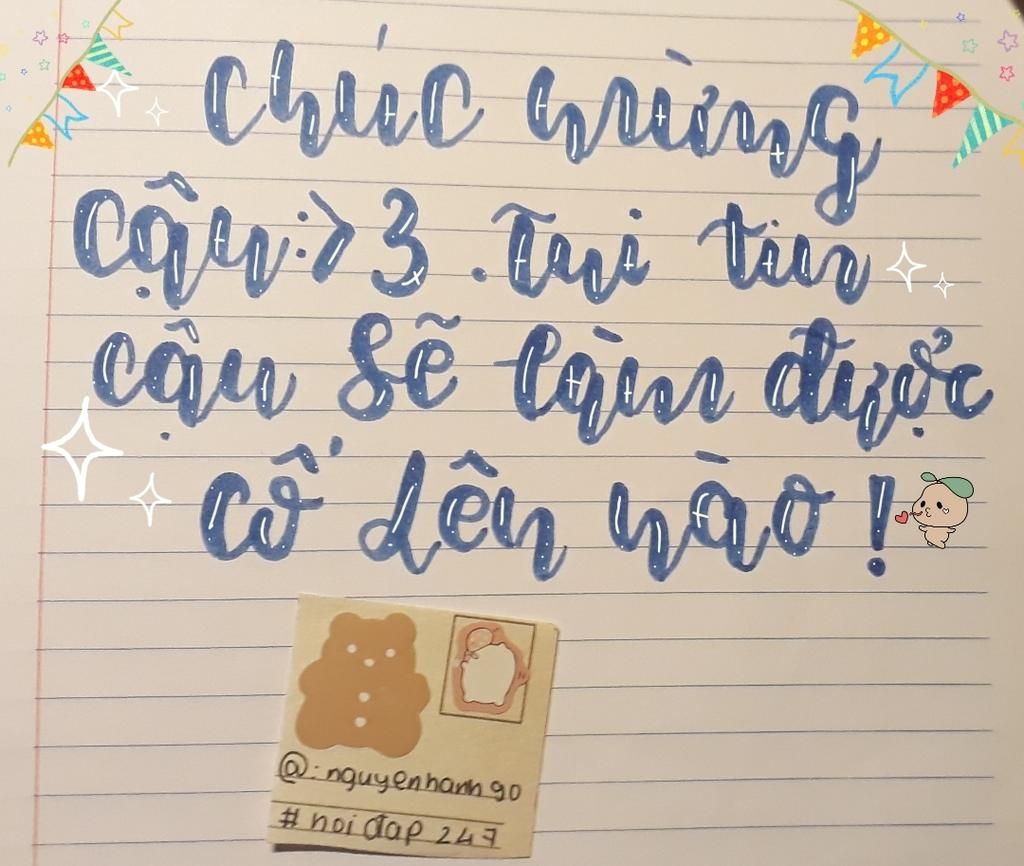 chúc mừng
cậu:>3. Tui tin
cậu sẽ làm được
cố lên nào!
@:nguyenhanh90
#hoidap247